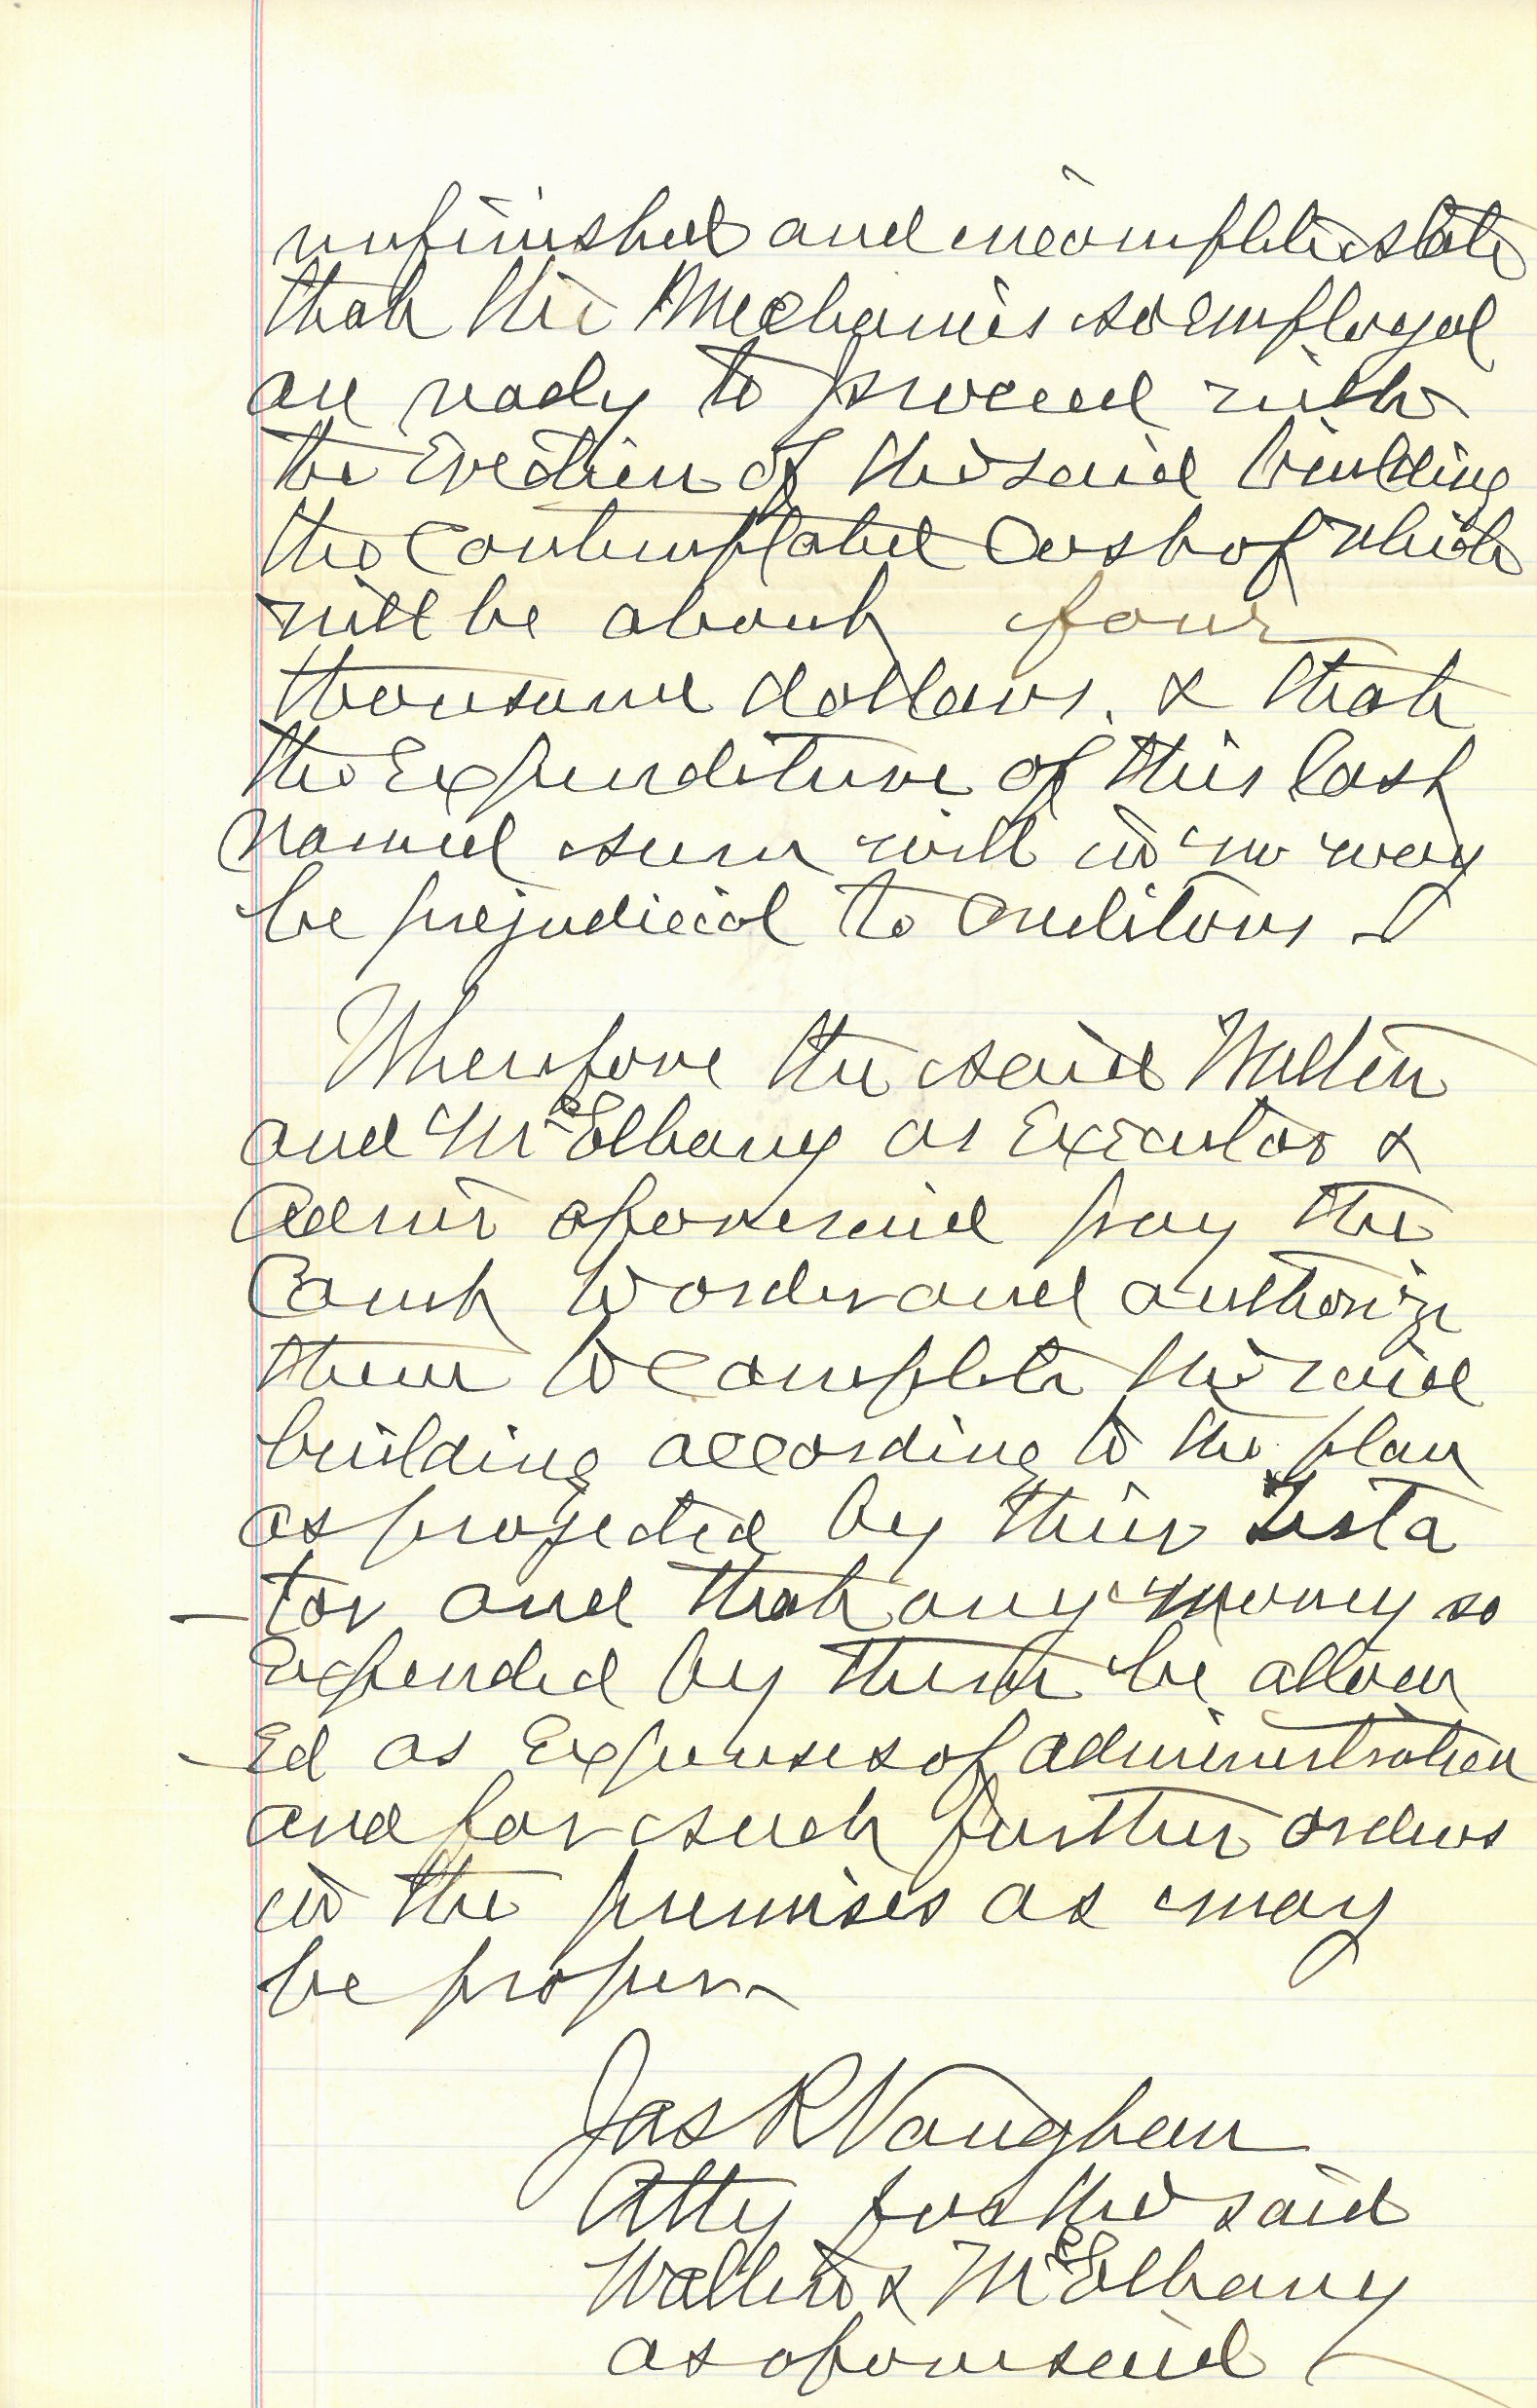 unfinished and incomplete state
that the Mechanics so employed
are ready to proceed with
the Erection of the said building
the Contemplated Cost of which
will be about four
thousand dollars. & that
the Expenditure of this last
named sum will in no way
be prejudicial to Creditors
Wherefore the said
and McElhany as Executor &
Admr aforesaid pray the
Court to order and authorize
them to complete the said
building according to the plan
as projected by their Testa
tor and that any money so
Expended by them be allow
Ed as Expenses of administration
and for such further orders
in the premises as may
be proper
Jas R Vaughan
Atty for the said
& McElhany
as aforesaid